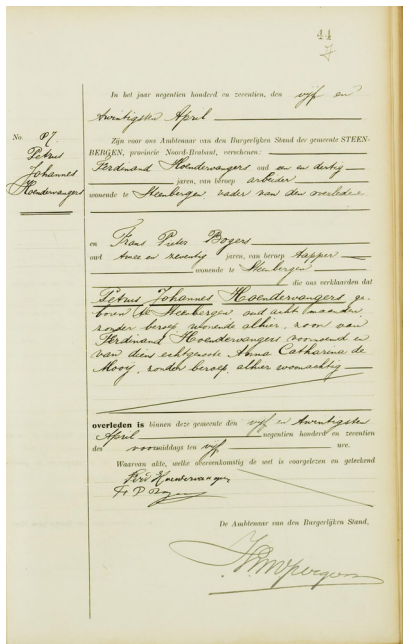 44
In het jaar negentien honderd en zeventien, den vijf en
twintigsten April
Zijn voor ons Ambtenaar van den Burgerlijken Stand der gemeente STEEN-
BERGEN, provincie Noord-Brabant, verschenen:
No. 87
Petrus
Johannes
Hoendervangers
Ferdinand Hoendervangers oud een en dertig
jaren, van beroep arbeider
wonende te Steenbergen vader van den overledene
en Frans Pieter Bogers
oud twee en zeventig jaren, van beroep tapper
wonende te Steenbergen
die ons verklaarden dat
Petrus Johannes Hoendervangers ge-
boren te Steenbergen oud acht maanden,
zonder beroep wonende alhier, zoon van
Ferdinand Hoendervangers voornoemd en
van diens echtgenoote Anna Catharina de
Mooij, zonder beroep, alhier woonachtig
overleden is binnen deze gemeente den vijf en twintigsten
April negentien honderd en zeventien
des voormiddags ten vijf ure.
Waarvan akte, welke overeenkomstig de wet is voorgelezen en geteekend
Ferd Hoendervangers
Fr P Bogers
De Ambtenaar van den Burgerlijken Stand,